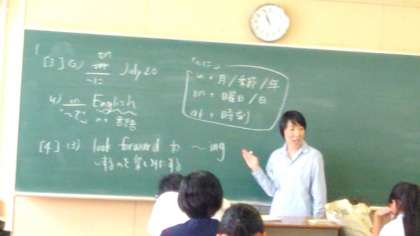 on
[3] (2) in July 20
~に
4) in English
~で in + 言語
[4] (3) look forward to ~ing
~するのを楽しみに待つ
「~に」
in = 月/季節/年
on = 曜日/日
at = 時刻